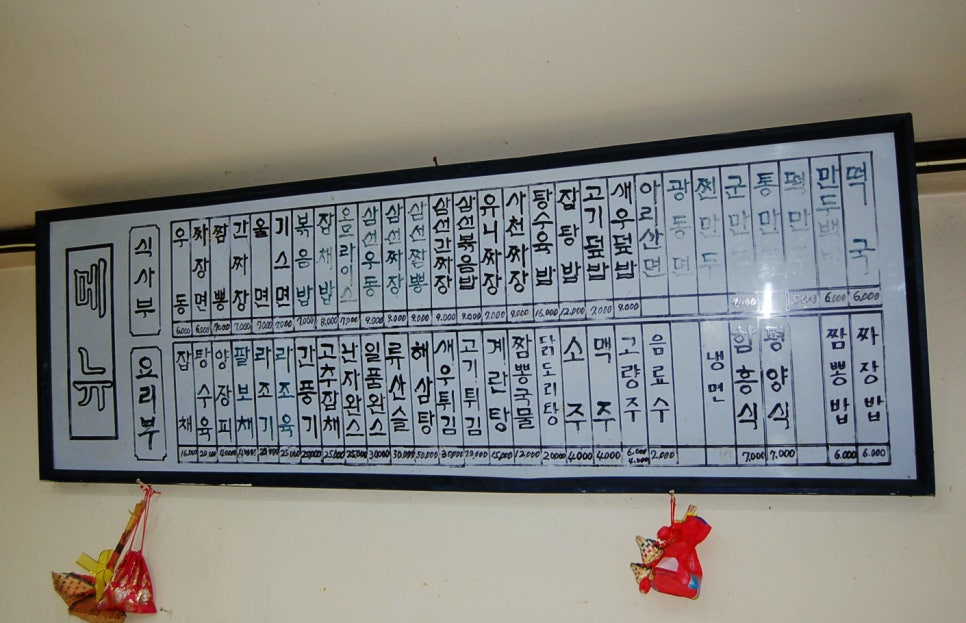 메뉴
식사부
우동 6,000
짜장면 6,000
짬뽕 7,000
간짜장 7,000
울면 7,000
기스면 7,000
볶음밥 7,000
잡채밥 8,000
오므라이스 7,000
삼선우동 9,000
삼선짜장 9,000
삼선짬뽕 9,000
삼선간짜장 9,000
삼선볶음밥 9,000
유니짜장 7,000
사천짜장 9,000
탕수육밥
잡탕밥 12,000
고기덮밥 7,000
새우덮밥 9,000
아리산면
광동면
찐만두
군만두
통만두
떡만
만두백 6,000
떡국 6,000
요리부
잡채
탕수육
양장피
팔보채
라조기
라조육
간풍기
고추잡채 25,000
난자완스 25,000
일품완스 30,000
류산슬 30,000
해삼탕 30,000
새우튀김 30,000
고기튀김 20,000
계란탕 15,000
짬뽕국물 12,000
닭도리탕 20,000
소주 4,000
맥주 4,000
고량주 6,000 4,000
음료수 2,000
냉면
함흥식 7,000
평양식 7,000
짬뽕밥 6,000
짜장밥 6,000